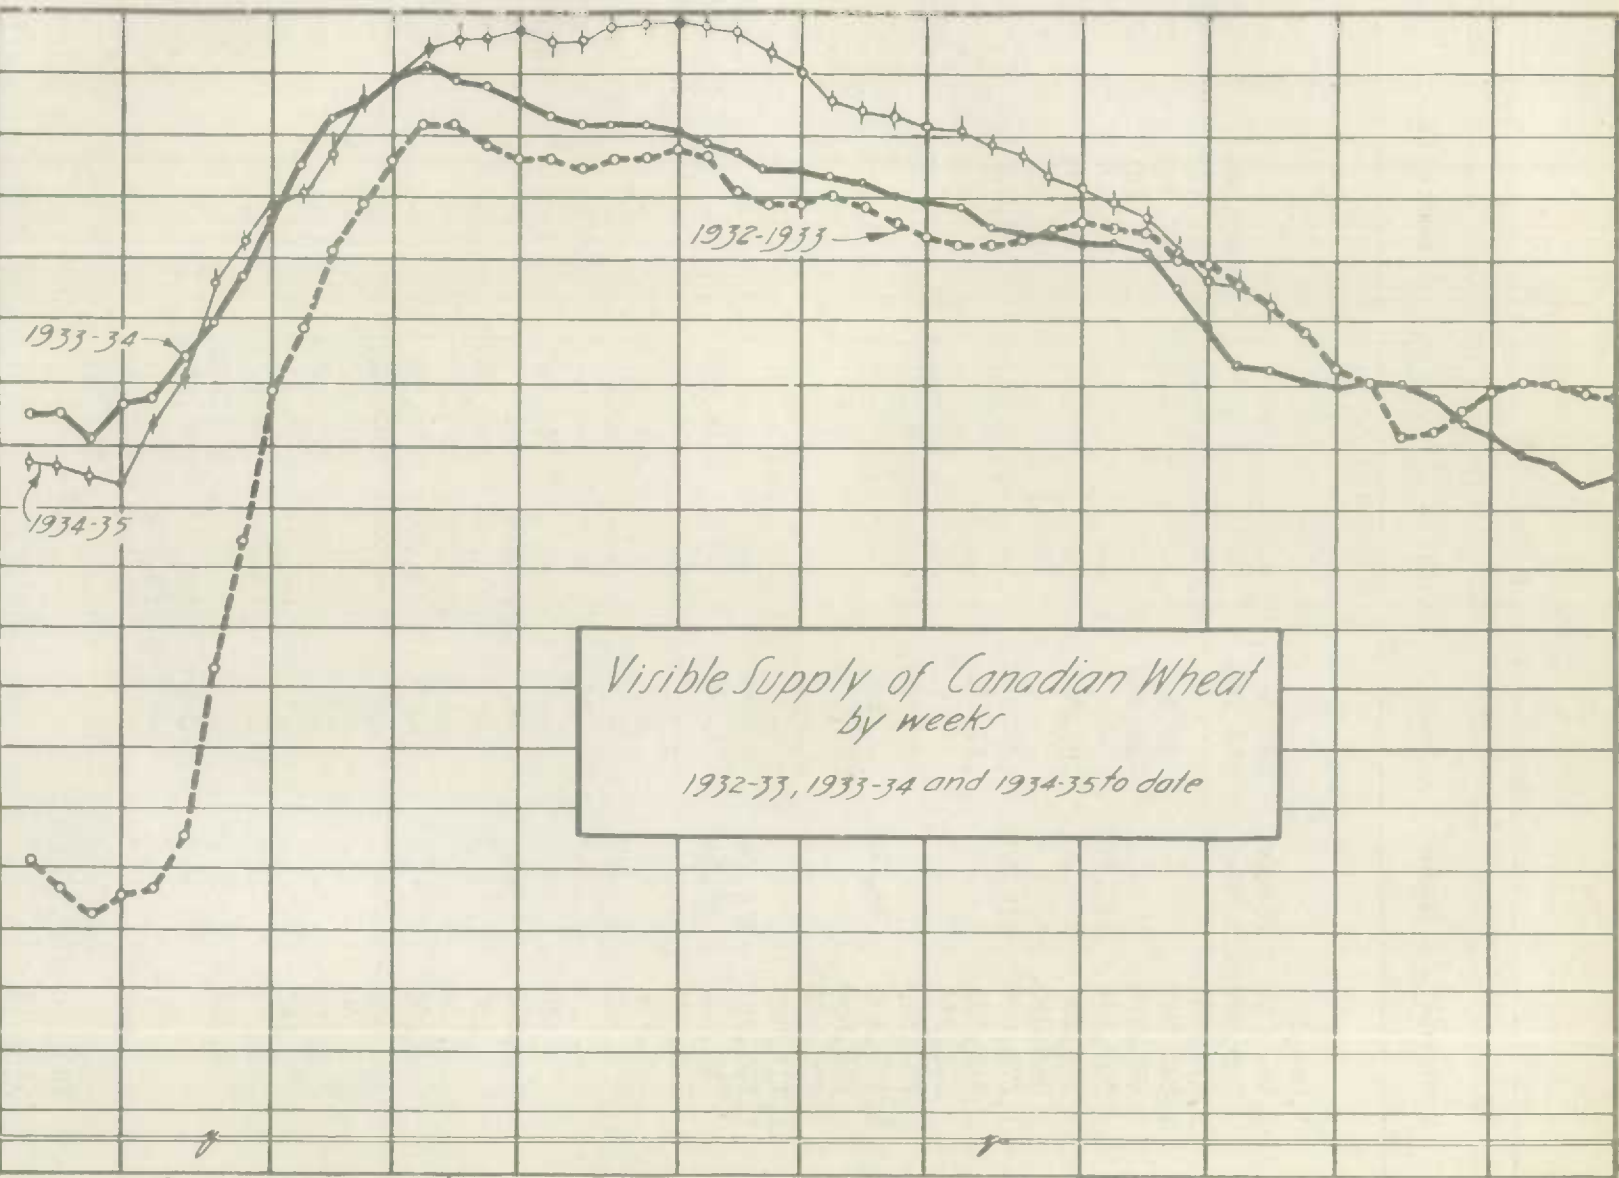 1932-1933
1933-34
1934-35
Visible Supply of Canadian Wheat
by weeks
1932-33, 1933-34 and 1934-35 to date